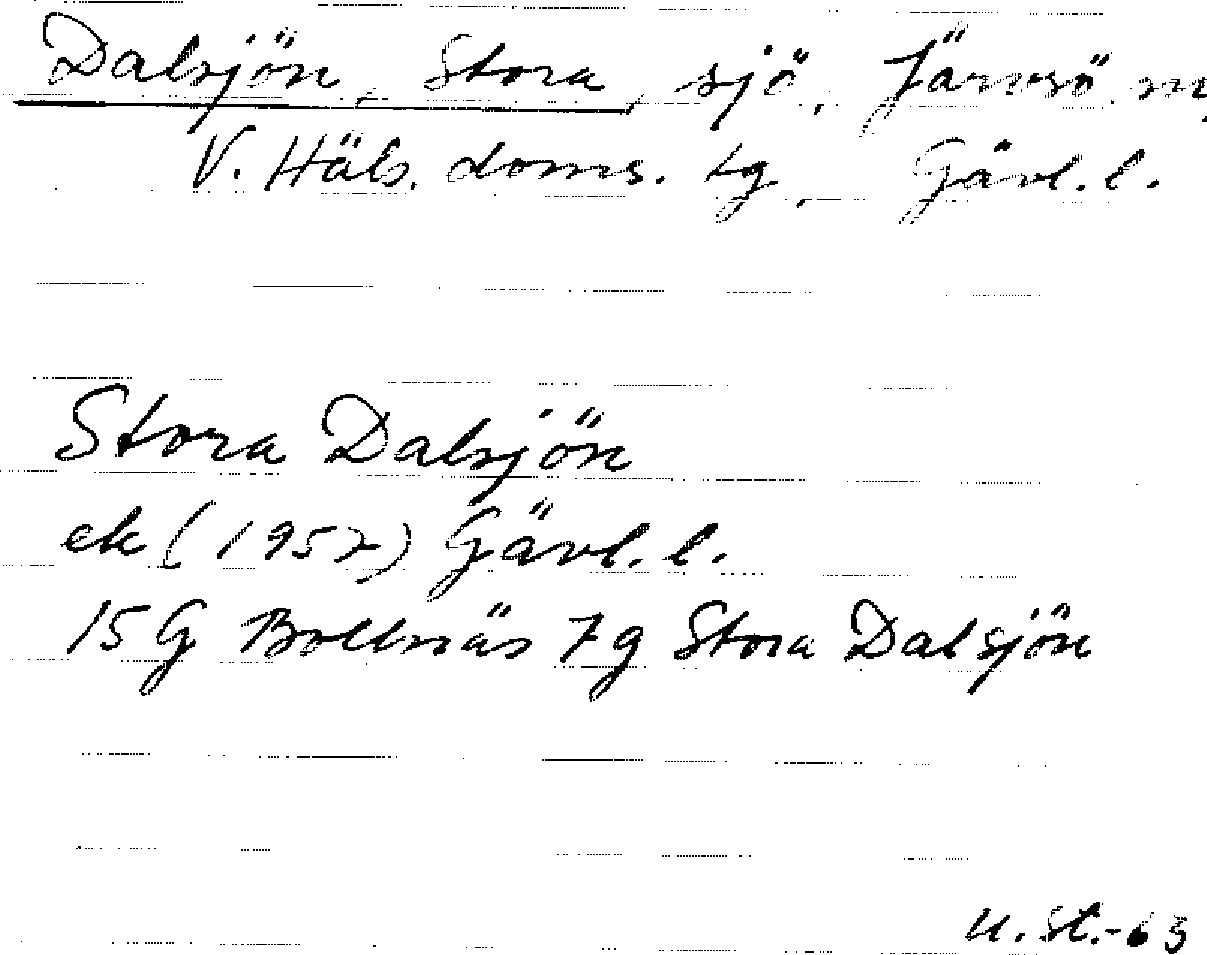 Dalsjön, Stora, sjö, Järvsö
V. Häls. doms. tg, Gävl. l.
Stora Dalsjön
ek (1957) Gävl. l.
15G Bollnäs 7g Stora Dalsjön
U. St.-63